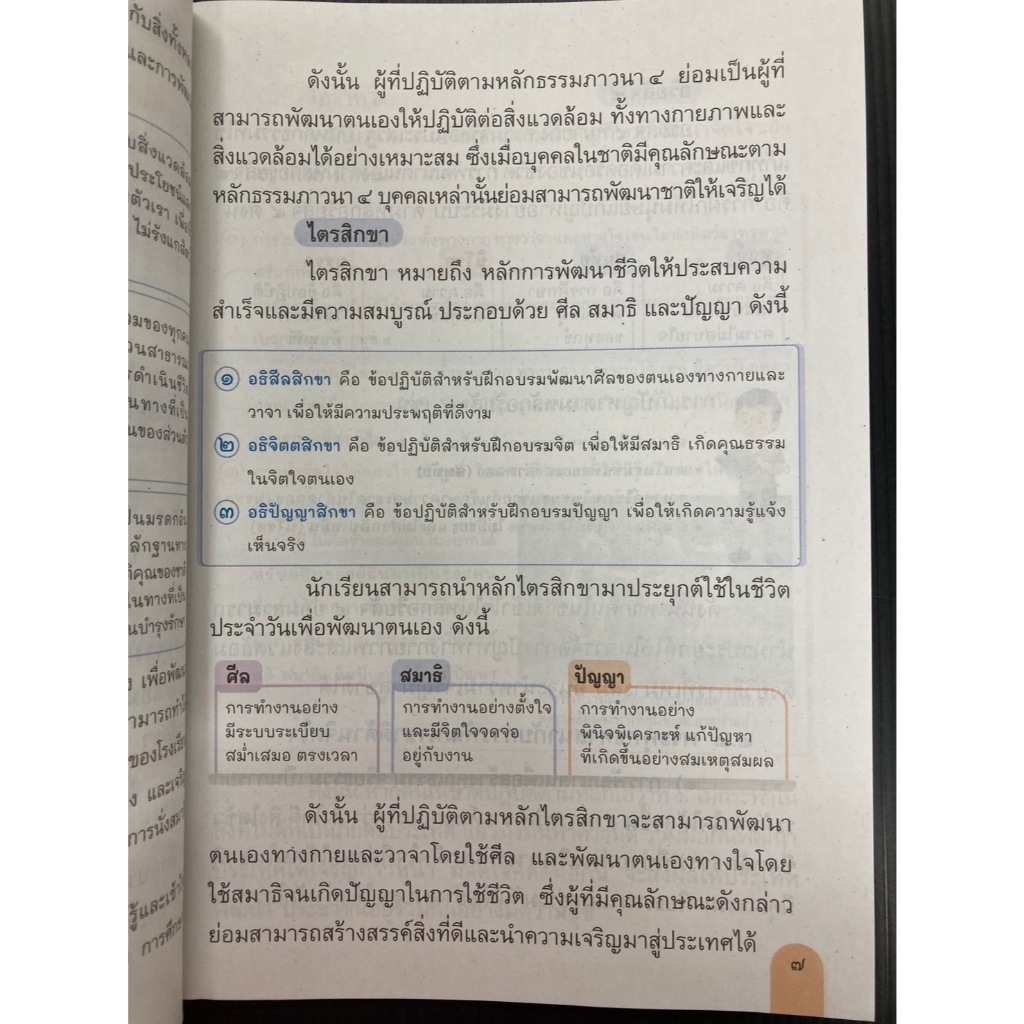 ดังนั้น ผู้ที่ปฏิบัติตามหลักธรรมภาวนา ๔ ย่อมเป็นผู้ที่
สามารถพัฒนาตนเองให้ปฏิบัติต่อสิ่งแวดล้อม ทั้งทางกายภาพและ
สิ่งแวดล้อมได้อย่างเหมาะสม ซึ่งเมื่อบุคคลในชาติมีคุณลักษณะตาม
หลักธรรมภาวนา ๔ บุคคลเหล่านั้นย่อมสามารถพัฒนาชาติให้เจริญได้
ไตรสิกขา
ไตรสิกขา หมายถึง หลักการพัฒนาชีวิตให้ประสบความ
สำเร็จและมีความสมบูรณ์ ประกอบด้วย ศีล สมาธิ และปัญญา ดังนี้
๑ อธิสีลสิกขา คือ ข้อปฏิบัติสำหรับฝึกอบรมพัฒนาศีลของตนเองทางกายและ
วาจา เพื่อให้มีความประพฤติที่ดีงาม
๒ อธิจิตตสิกขา คือ ข้อปฏิบัติสำหรับฝึกอบรมจิต เพื่อให้มีสมาธิ เกิดคุณธรรม
ในจิตใจตนเอง
๓ อธิปัญญาสิกขา คือ ข้อปฏิบัติสำหรับฝึกอบรมปัญญา เพื่อให้เกิดความรู้แจ้ง
เห็นจริง
นักเรียนสามารถนำหลักไตรสิกขามาประยุกต์ใช้ในชีวิต
ประจำวันเพื่อพัฒนาตนเอง ดังนี้
ศีล
การทำงานอย่าง
มีระบบระเบียบ
สม่ำเสมอ ตรงเวลา
สมาธิ
การทำงานอย่างตั้งใจ
และมีจิตใจจดจ่อ
อยู่กับงาน
ปัญญา
การทำงานอย่าง
พินิจพิเคราะห์ แก้ปัญหา
ที่เกิดขึ้นอย่างสมเหตุสมผล
ดังนั้น ผู้ที่ปฏิบัติตามหลักไตรสิกขาจะสามารถพัฒนา
ตนเองทางกายและวาจาโดยใช้ศีล และพัฒนาตนเองทางใจโดย
ใช้สมาธิจนเกิดปัญญาในการใช้ชีวิต ซึ่งผู้ที่มีคุณลักษณะดังกล่าว
ย่อมสามารถสร้างสรรค์สิ่งที่ดีและนำความเจริญมาสู่ประเทศได้
๗